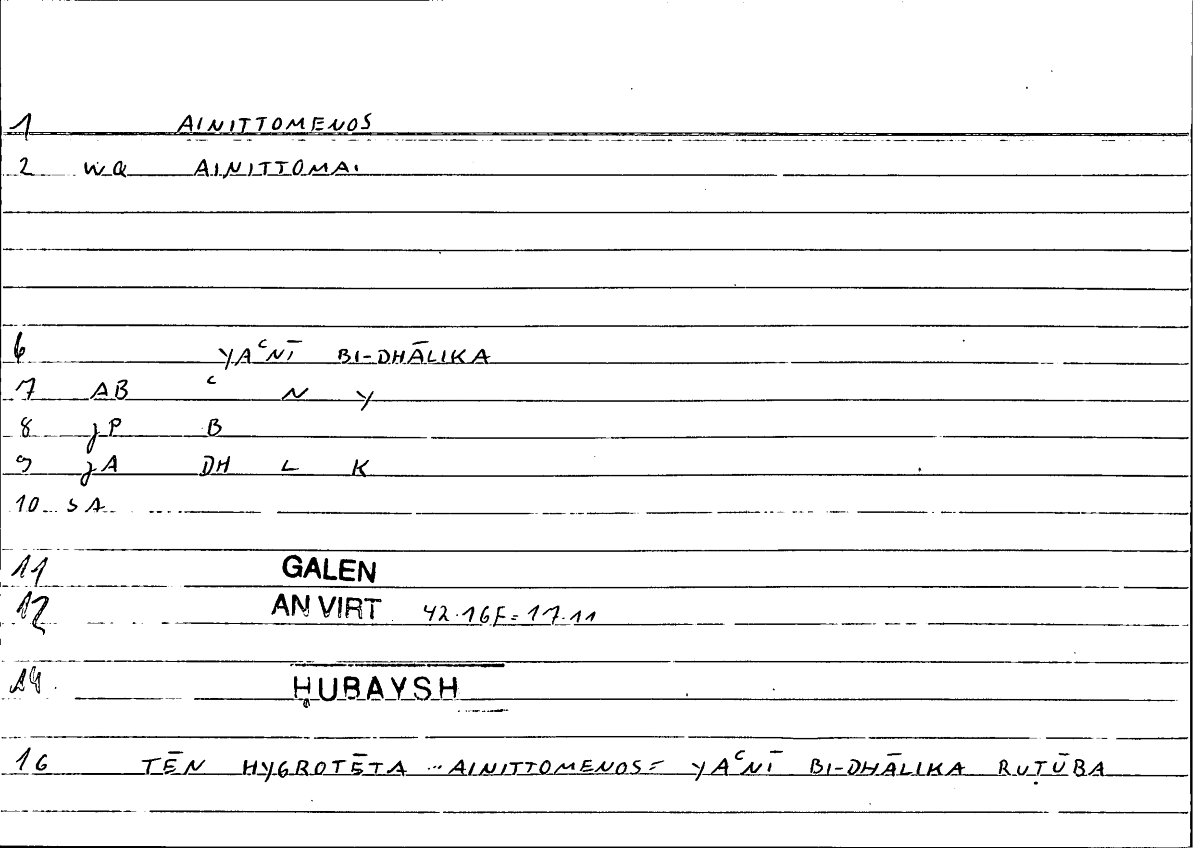 1 AINITTOMENOS
2 WQ AINITTOMAI
6 YAʿNĪ BI-DHĀLIKA
7 AB ʿ N Y
8 JP B
9 JA DH L K
10 SA
11 GALEN
12 AN VIRT 42.16F = 17.11
14 ḤUBAYSH
16 TĒN HYGROTĒTA ... AINITTOMENOS = YAʿNĪ BI-DHĀLIKA RUṬŪBA